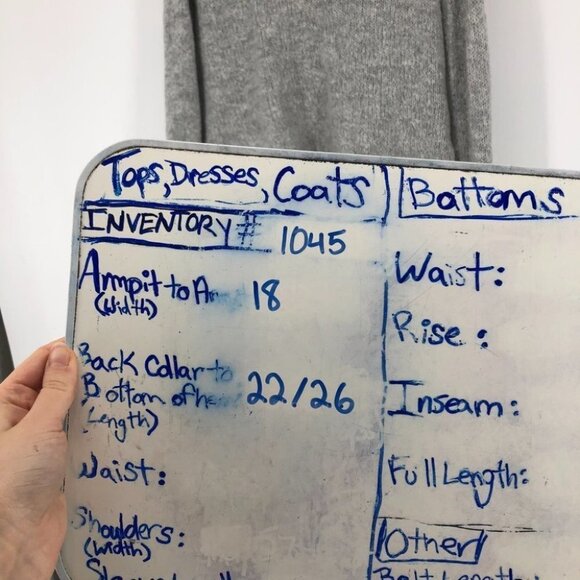 Tops, Dresses, Coats
INVENTORY # 1045
Armpit to 18
(Width)
Back Collar to
Bottom of 22/26
(Length)
Waist:
Shoulders:
(Width)
Bottoms
Waist:
Rise:
Inseam:
Full Length:
Other